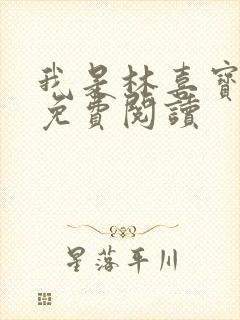 我是林喜寶
免費閱讀
星落平川